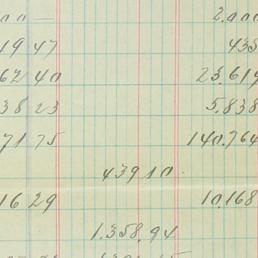 00 — 2.000
19 47 435
62 40 23.619
38 23 5.838
71 75 140.764
439 10.
16 29 10.168
1.358.94